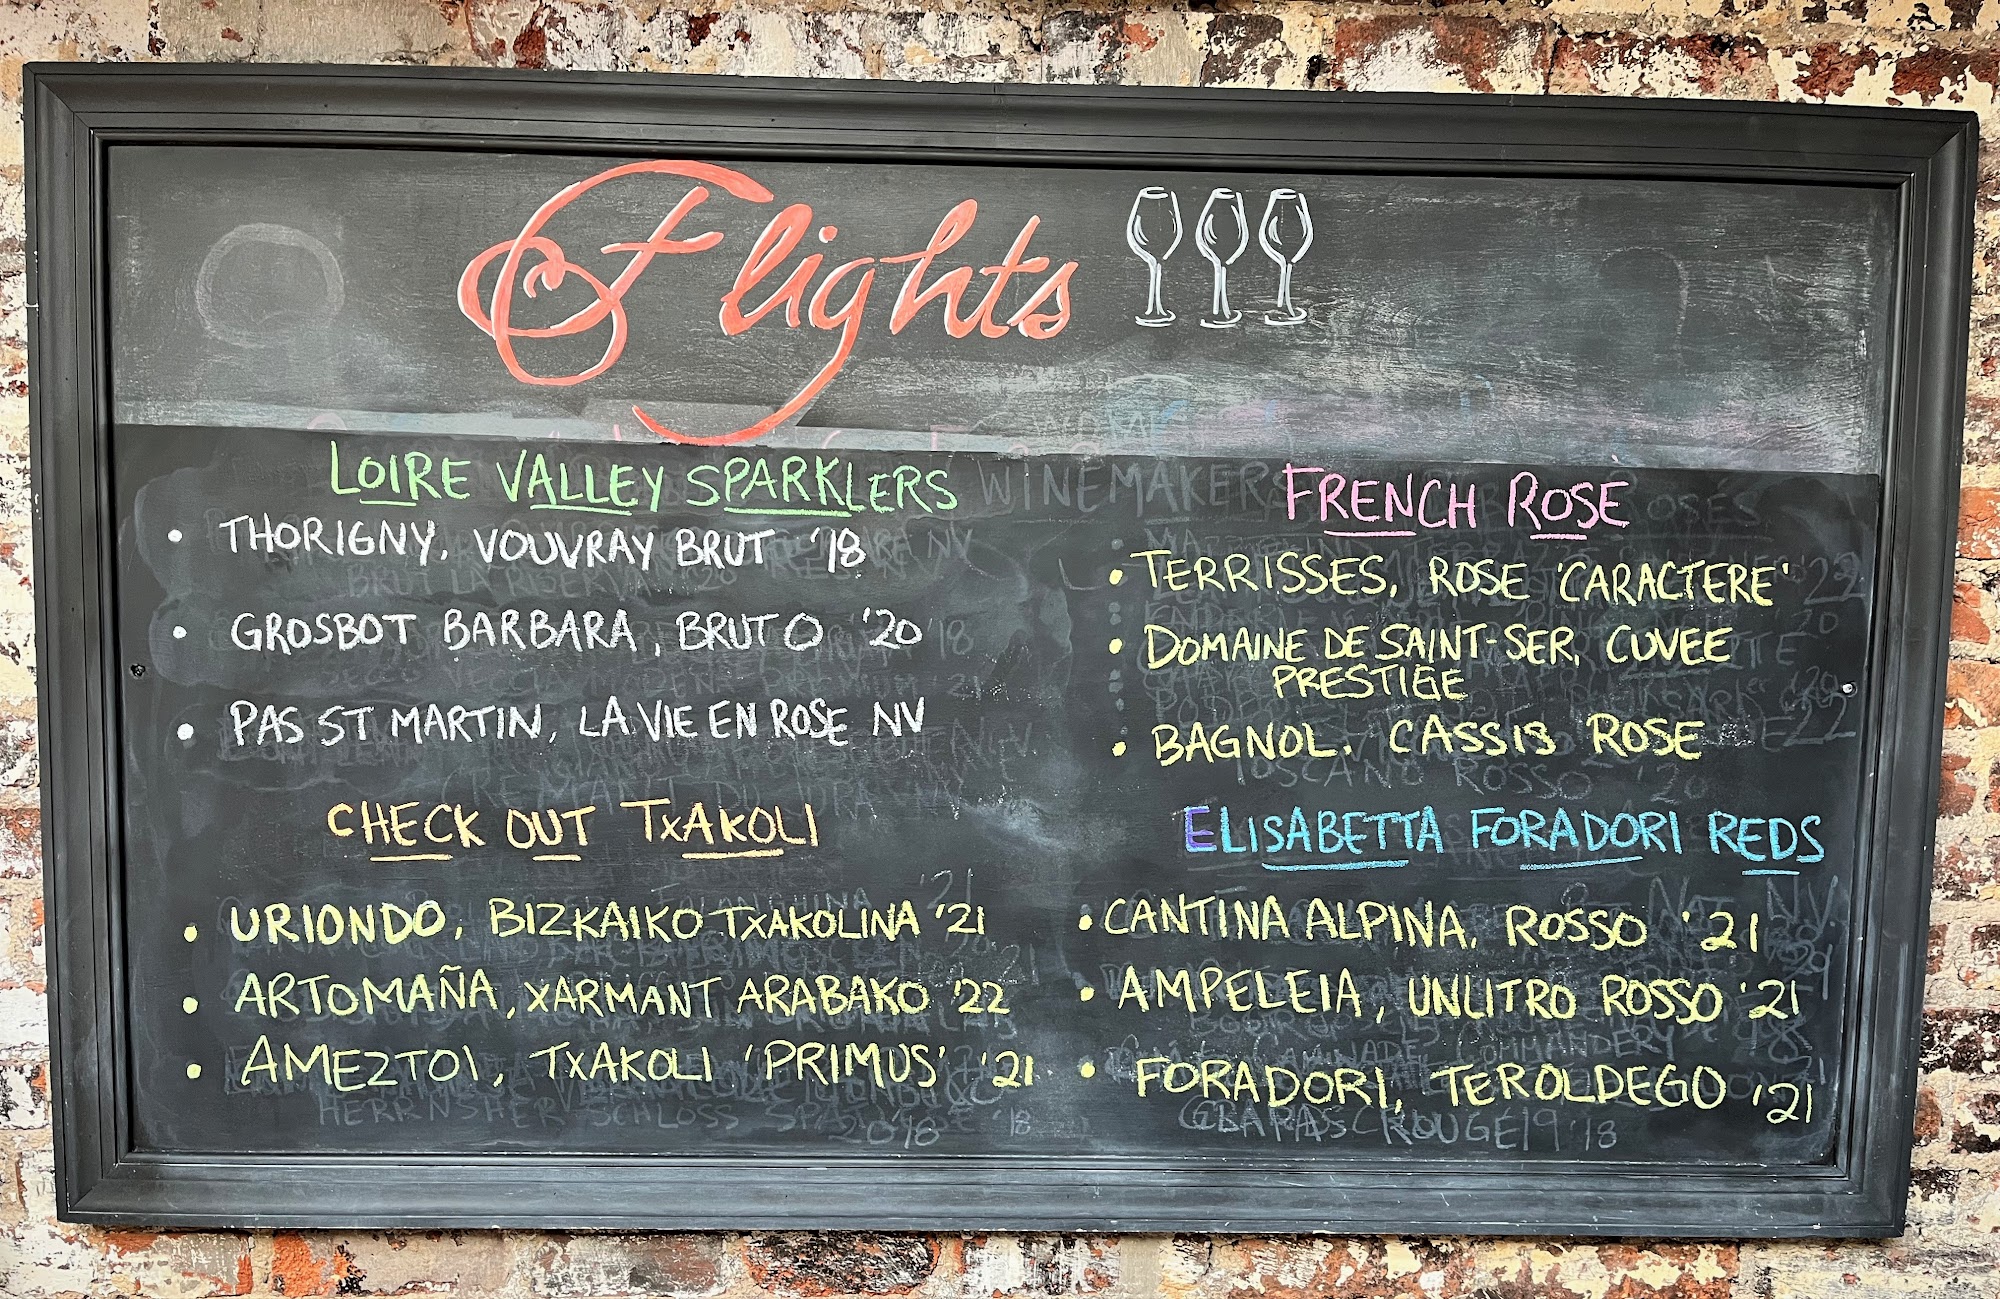 Flights
LOIRE VALLEY SPARKLERS
• THORIGNY, VOUVRAY BRUT '18
• GROSBOT BARBARA, BRUT O '20
• PAS ST MARTIN, LA VIE EN ROSE NV
CHECK OUT TXAKOLI
• URIONDO, BIZKAIKO TXAKOLINA '21
• ARTOMAÑA, XARMANT ARABAKO '22
• AMEZTOI, TXAKOLI 'PRIMUS' '21
WINEMAKERS
FRENCH ROSE
• TERRISSES, ROSE 'CARACTERE'
• DOMAINE DE SAINT-SER, CUVEE
PRESTIGE
• BAGNOL. CASSIS ROSE
TOSCANO ROSSO '20
ELISABETTA FORADORI REDS
• CANTINA ALPINA, ROSSO '21
• AMPELEIA, UNLITRO ROSSO '21
• FORADORI, TEROLDEGO '21
HERRNSHER SCHLOSS
2018